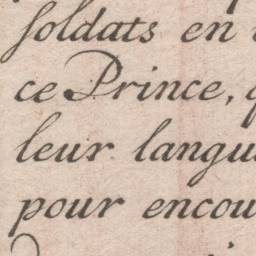 soldats en
ce Prince,
leur langu
pour encou